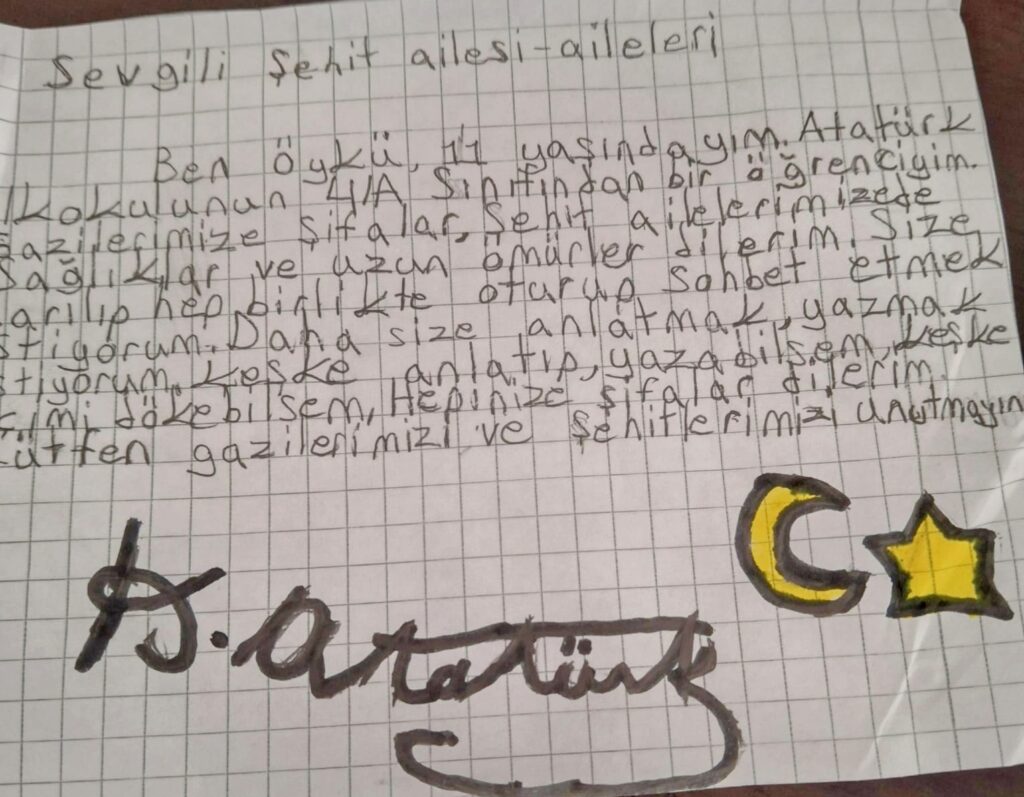 Sevgili Şehit ailesi-aileleri
Ben öykü, 11 yaşındayım. Atatürk
lkokulunun 4/A Sınıfından bir öğrenciyim.
gazilerimize şifalar, şehit ailelerimizede
sağlıklar ve uzun ömürler dilerim. Size
arılıp hep birlikte oturup sohbet etmek
stiyorum. Daha size anlatmak, yazmak
stiyorum. keşke anlatıp, yazabilsem, keşke
çimi dökebilsem, Hepinize şifalar dilerim.
Lütfen gazilerimizi ve şehitlerimizi unutmayın
K. Atatürk